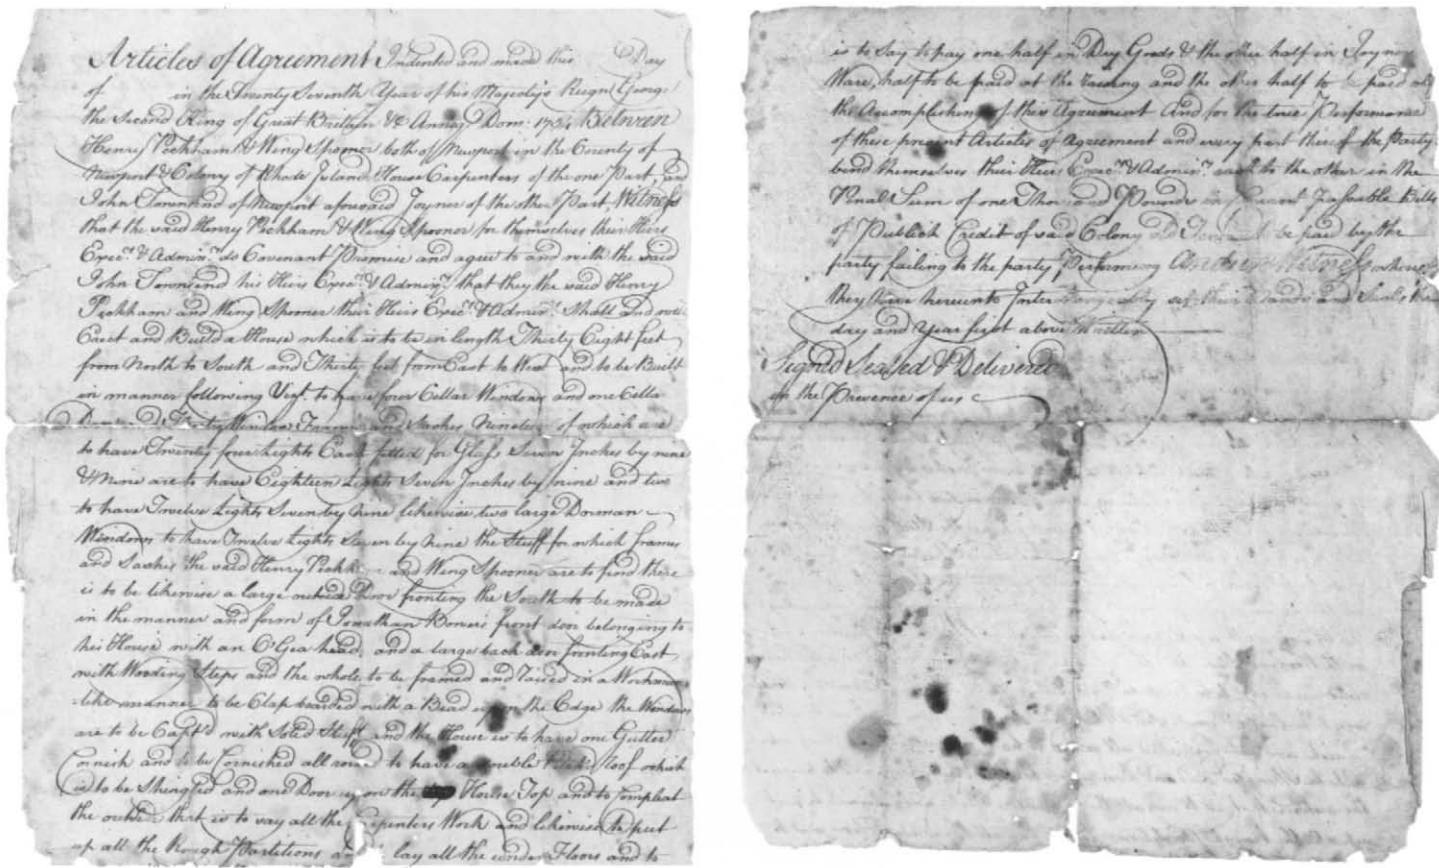 Articles of Agreement Indented and made this Day
of in the Twenty Seventh Year of his Majestys Reign George
the Second King of Great Brittain &c Annoq Dom: 1754 Between
Henry Peckham & Wing Spooner both of Newport in the County of
Newport & Colony of Rhode Island House Carpenters of the one Part, and
John Townsend of Newport aforesaid Joyner of the other Part Witness
that the said Henry Peckham & Wing Spooner for themselves their Heirs
Execrs. & Adminrs. do Covenant Promise and agree to and with the said
John Townsend his Heirs Execrs & Adminrs. that they the said Henry
Peckham and Wing Spooner their Heirs Execrs. & Adminrs. Shall and will
Erect and Build a House which is to be in length Thirty Eight feet
from North to South and Thirty feet from East to West and to be Built
in manner following Vizt. to have four Cellar Windows and one Cellar
Door and Thirty Window Frames and Sashes Nineteen of which are
to have Twenty four Lights Each fitted for Glass Seven Inches by nine
& Nine are to have Eighteen Lights Seven Inches by nine and two
to have Twelve Lights Seven by Nine likewise two large Dorman
Windows to have Twelve Lights Seven by Nine the Stuff for which frames
and Sashes the said Henry Peckham and Wing Spooner are to find there
is to be likewise a large outside Door fronting the South to be made
in the manner and form of Jonathan Bowers front door belonging to
his House with an O'Gea head, and a large back door fronting East,
with Wooding Steps and the whole to be framed and raised in a Workman
like manner to be Clap boarded with a Bead upon the Edge the Windows
are to be Capt'd with Solid Stuff and the House is to have one Gutter
Cornish and to be Cornished all round to have a Double roof which
is to be Shingled and one Door upon the House Top and to Compleat
the outside that is to say all the Carpenters Work and likewise to put
up all the Rough Partitions and lay all the under Floors and to
is to say to pay one half in Dry Goods & the other half in Joynary
Ware, half to be paid at the raising and the other half to paid at
the Accomplishing of this Agreement And for the true Performance
of these present Articles of Agreement and every part thereof the Partys
bind themselves their Heirs Execrs. & Adminrs. each to the other in the
Penal Sum of one Thousand Pounds in Passable Bills
of Publick Credit of said Colony old Tenor to be paid by the
party failing to the party Performing And in Witness whereof
they have hereunto Interchangeably set their Hands and Seals the
day and Year first above Written
Signed Sealed & Delivered
in the Presence of us